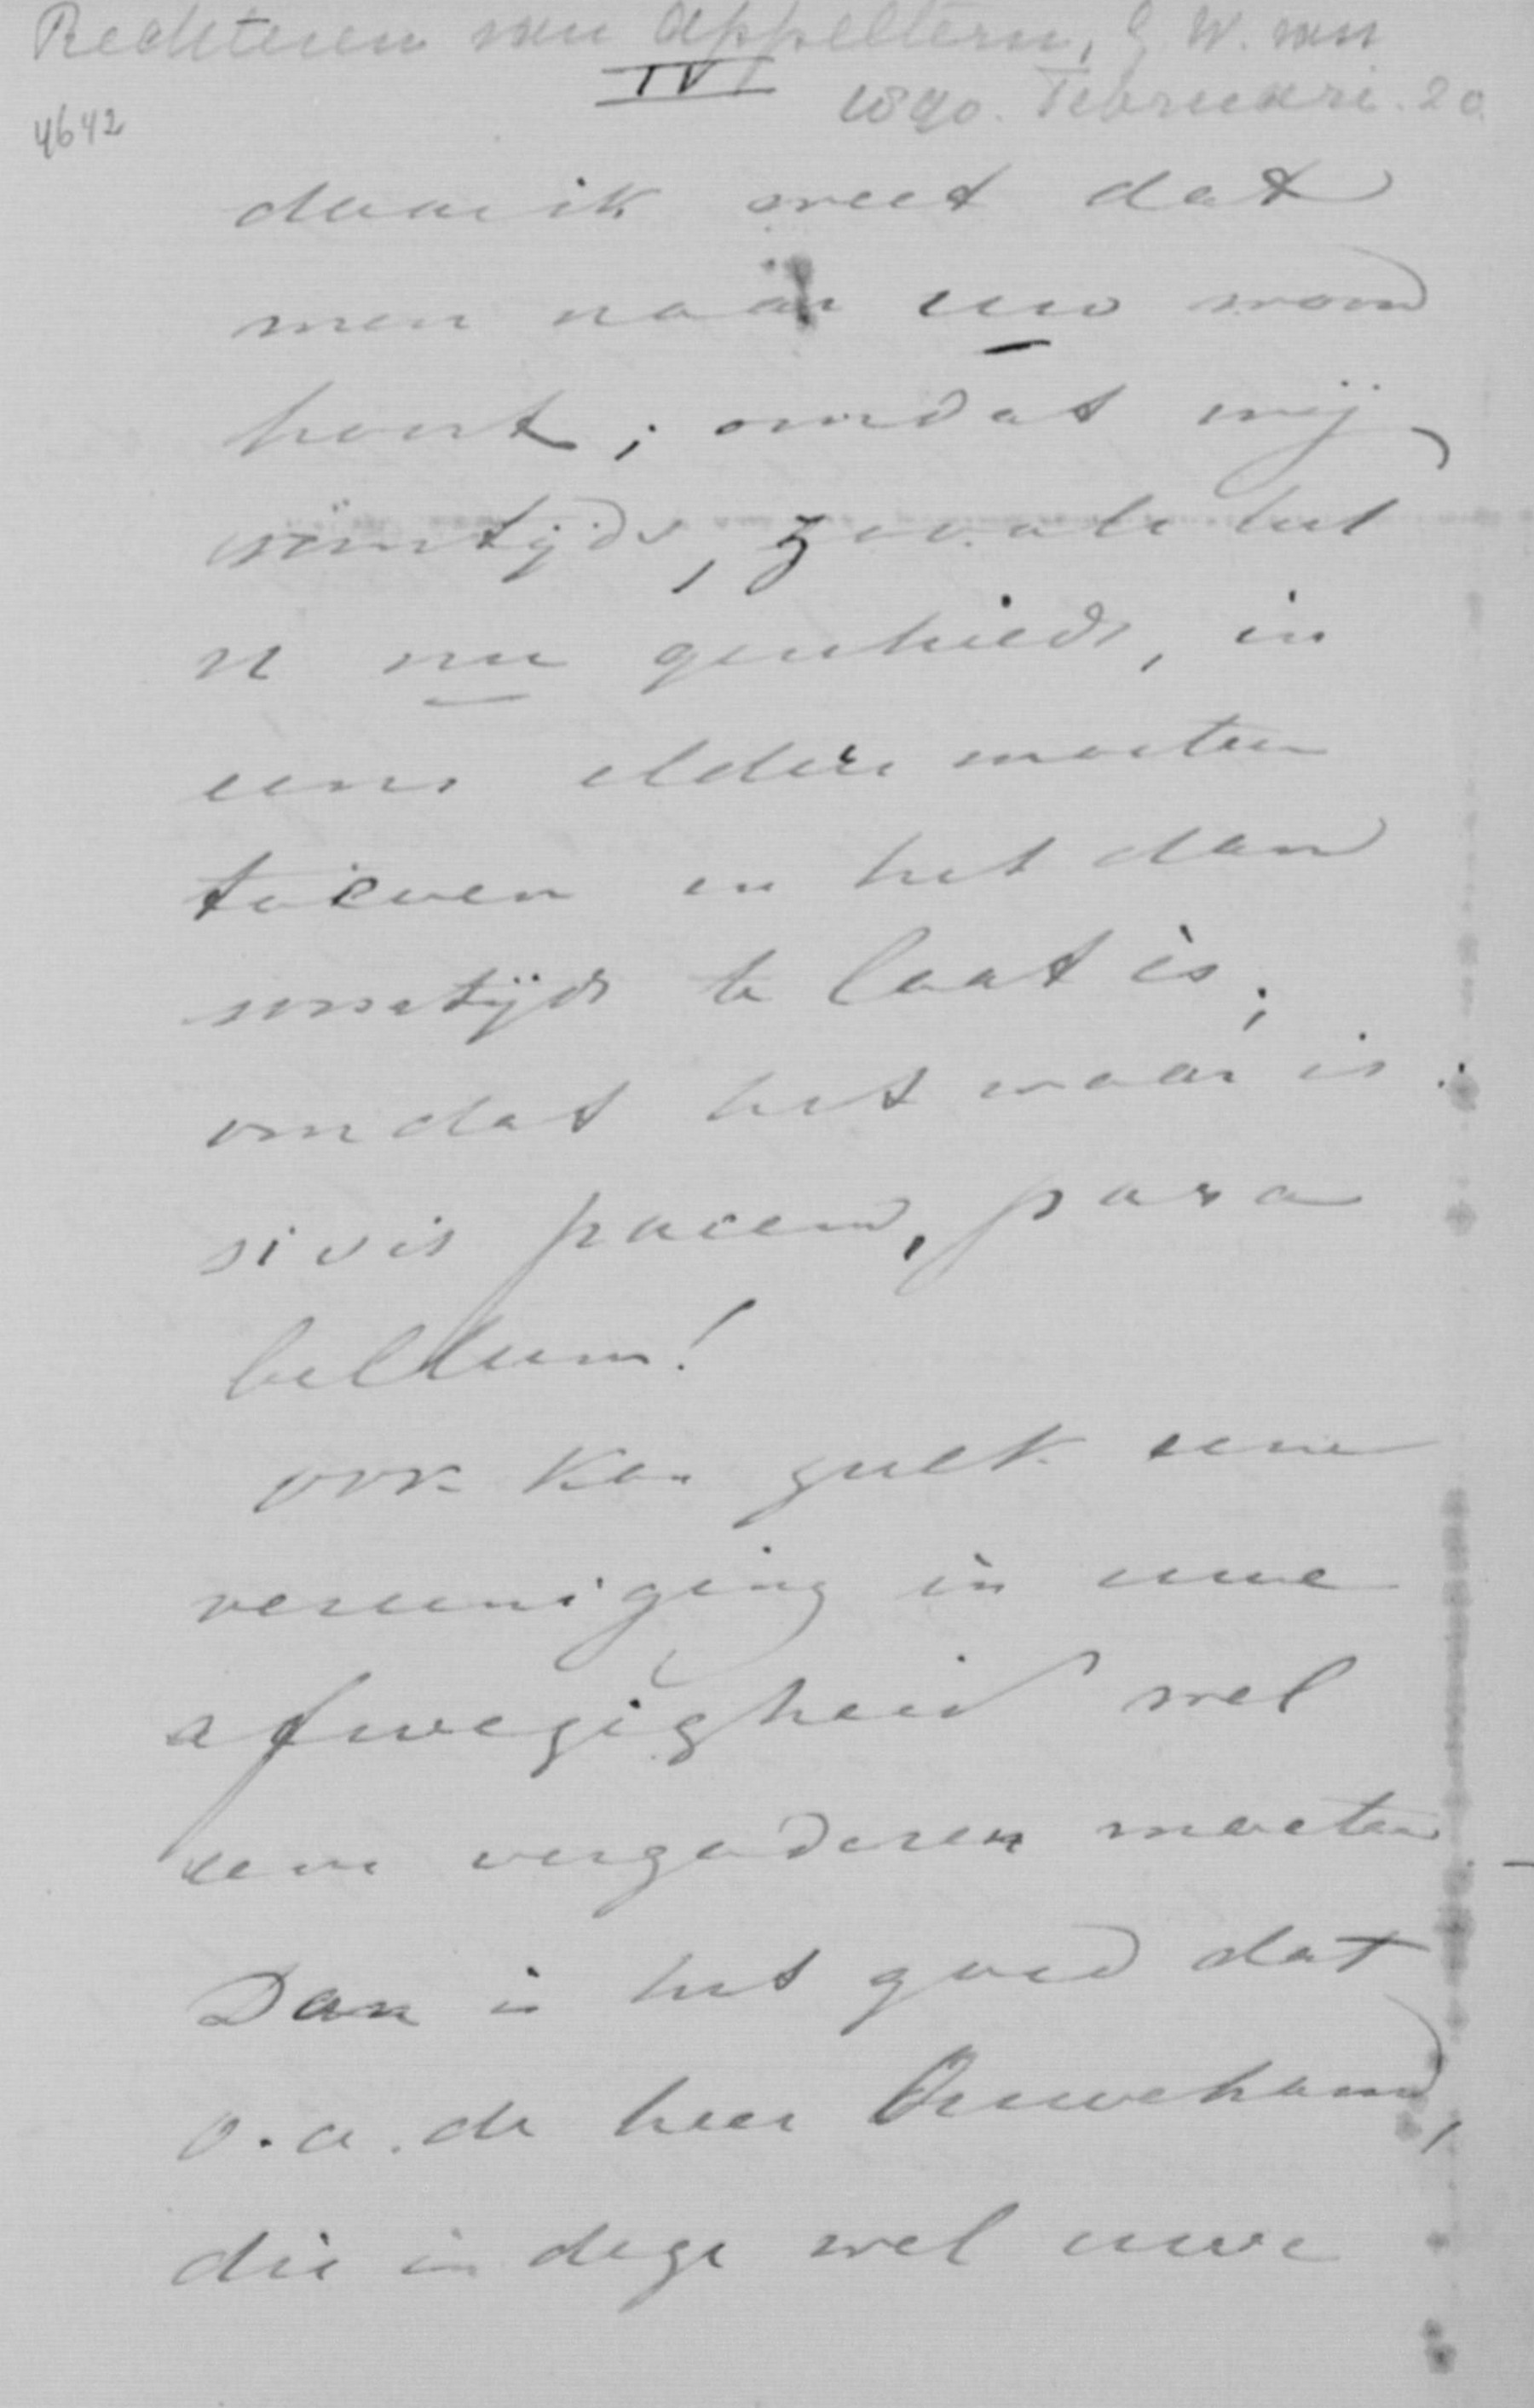 Rechteren van Appeltern, G. W. van
IV
1890. Februari. 20.
4642
daar ik weet dat
men naar uw woord
hoort; omdat wij
somtijds, zooals het
nu geschiedt, in
eens elders moeten
toeven en het dan
somtijds te laat is;
omdat het waar is:
si vis pacem, para
bellum!
ook kan zulk eene
vereeniging in uwe
afwezigheid wel
eens vergaderen moeten.
Dan is het goed dat
o.a. de heer Ouwehand,
die in deze wel uwe